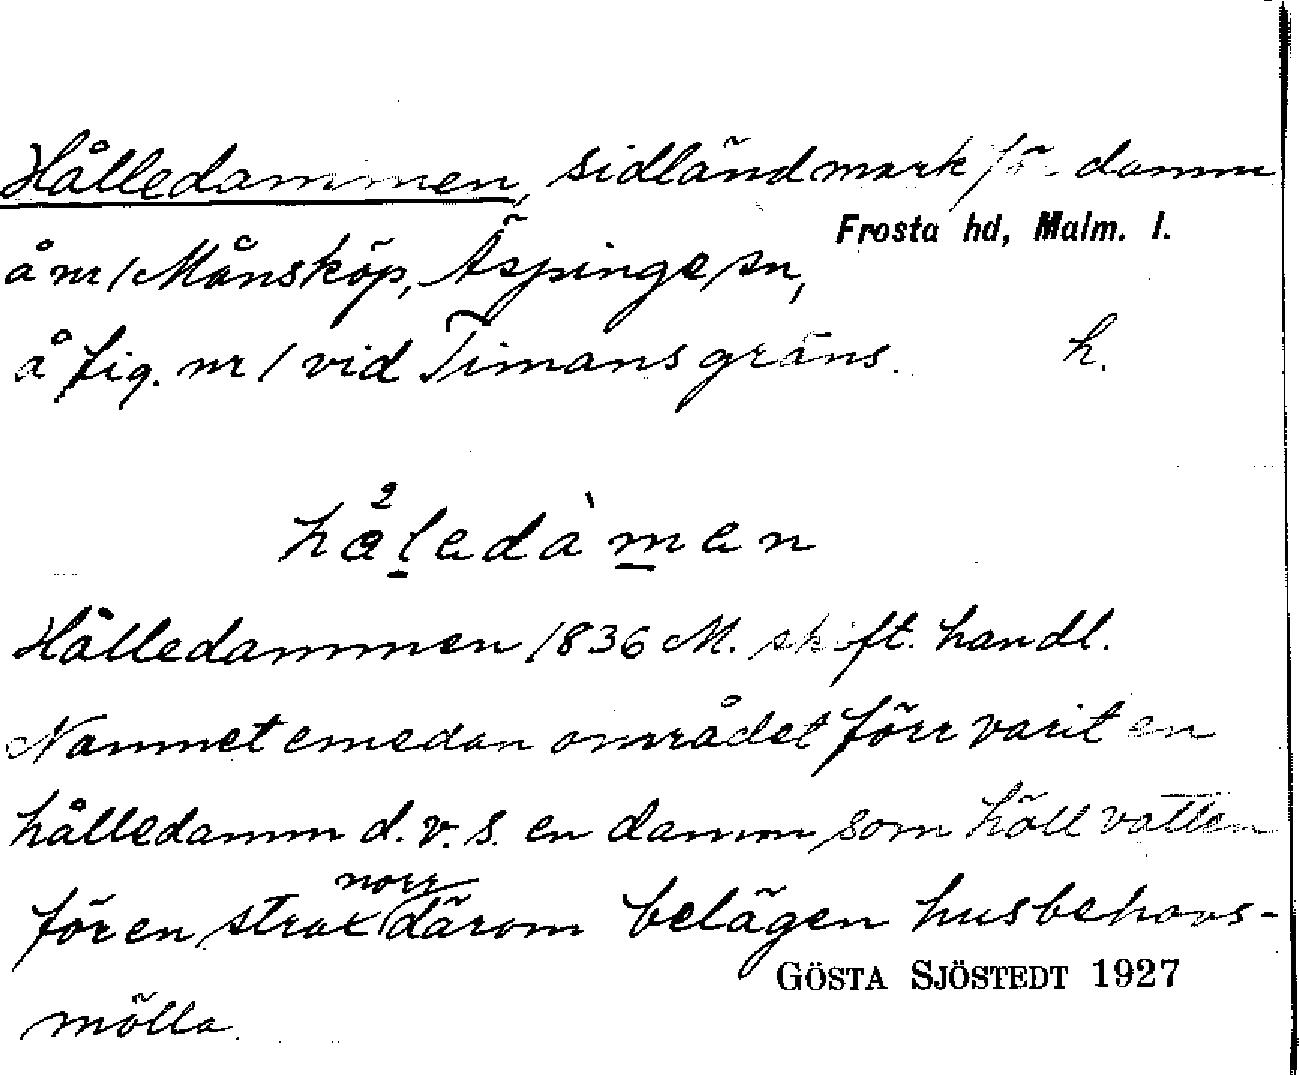 Hålledammen, sidländ mark, f. d. damm
Frosta hd, Malm. l.
å nr 1 Månsköp, Äspinge sn,
å fig. nr 1 vid Timans gräns. h.
håledàmen
Hålledammen 1836 M. skift. handl.
Namnet emedan området förr varit en
hålledamm d.v.s. en damm som höll vatten
för en strax norr därom belägen husbehovs-
GÖSTA SJÖSTEDT 1927
mölla.